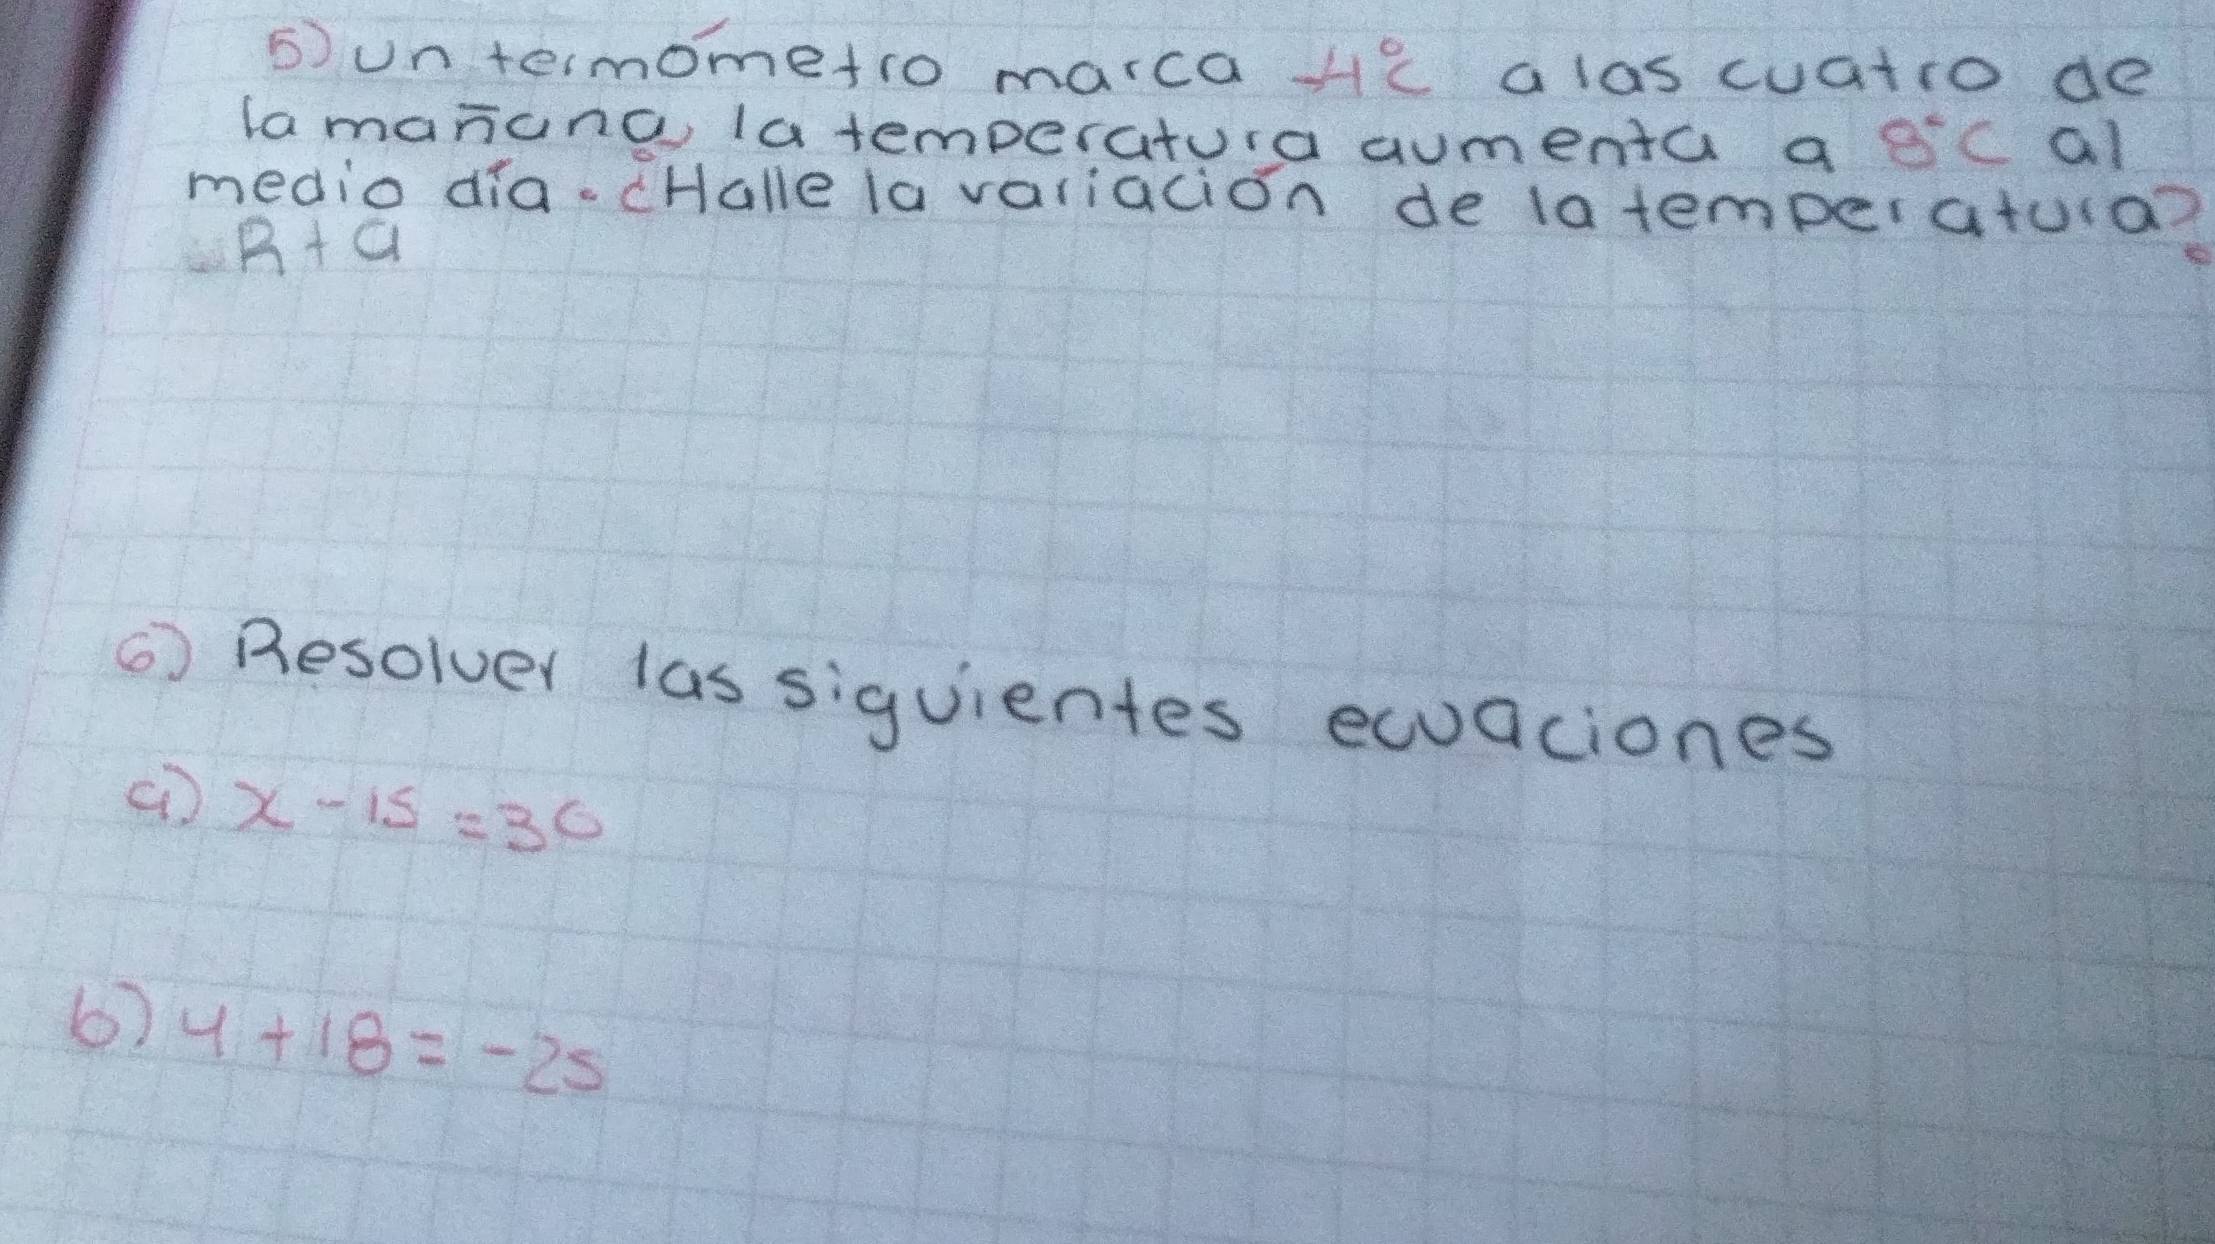 5) un termómetro marca -4°C a las cuatro de
la mañana, la temperatura aumenta a 8°C al
medio día. ¿Halle la variación de la temperatura?
R + a
6) Resolver las siguientes ecuaciones
a) x - 15 = 30
b) 4 + 18 = -25